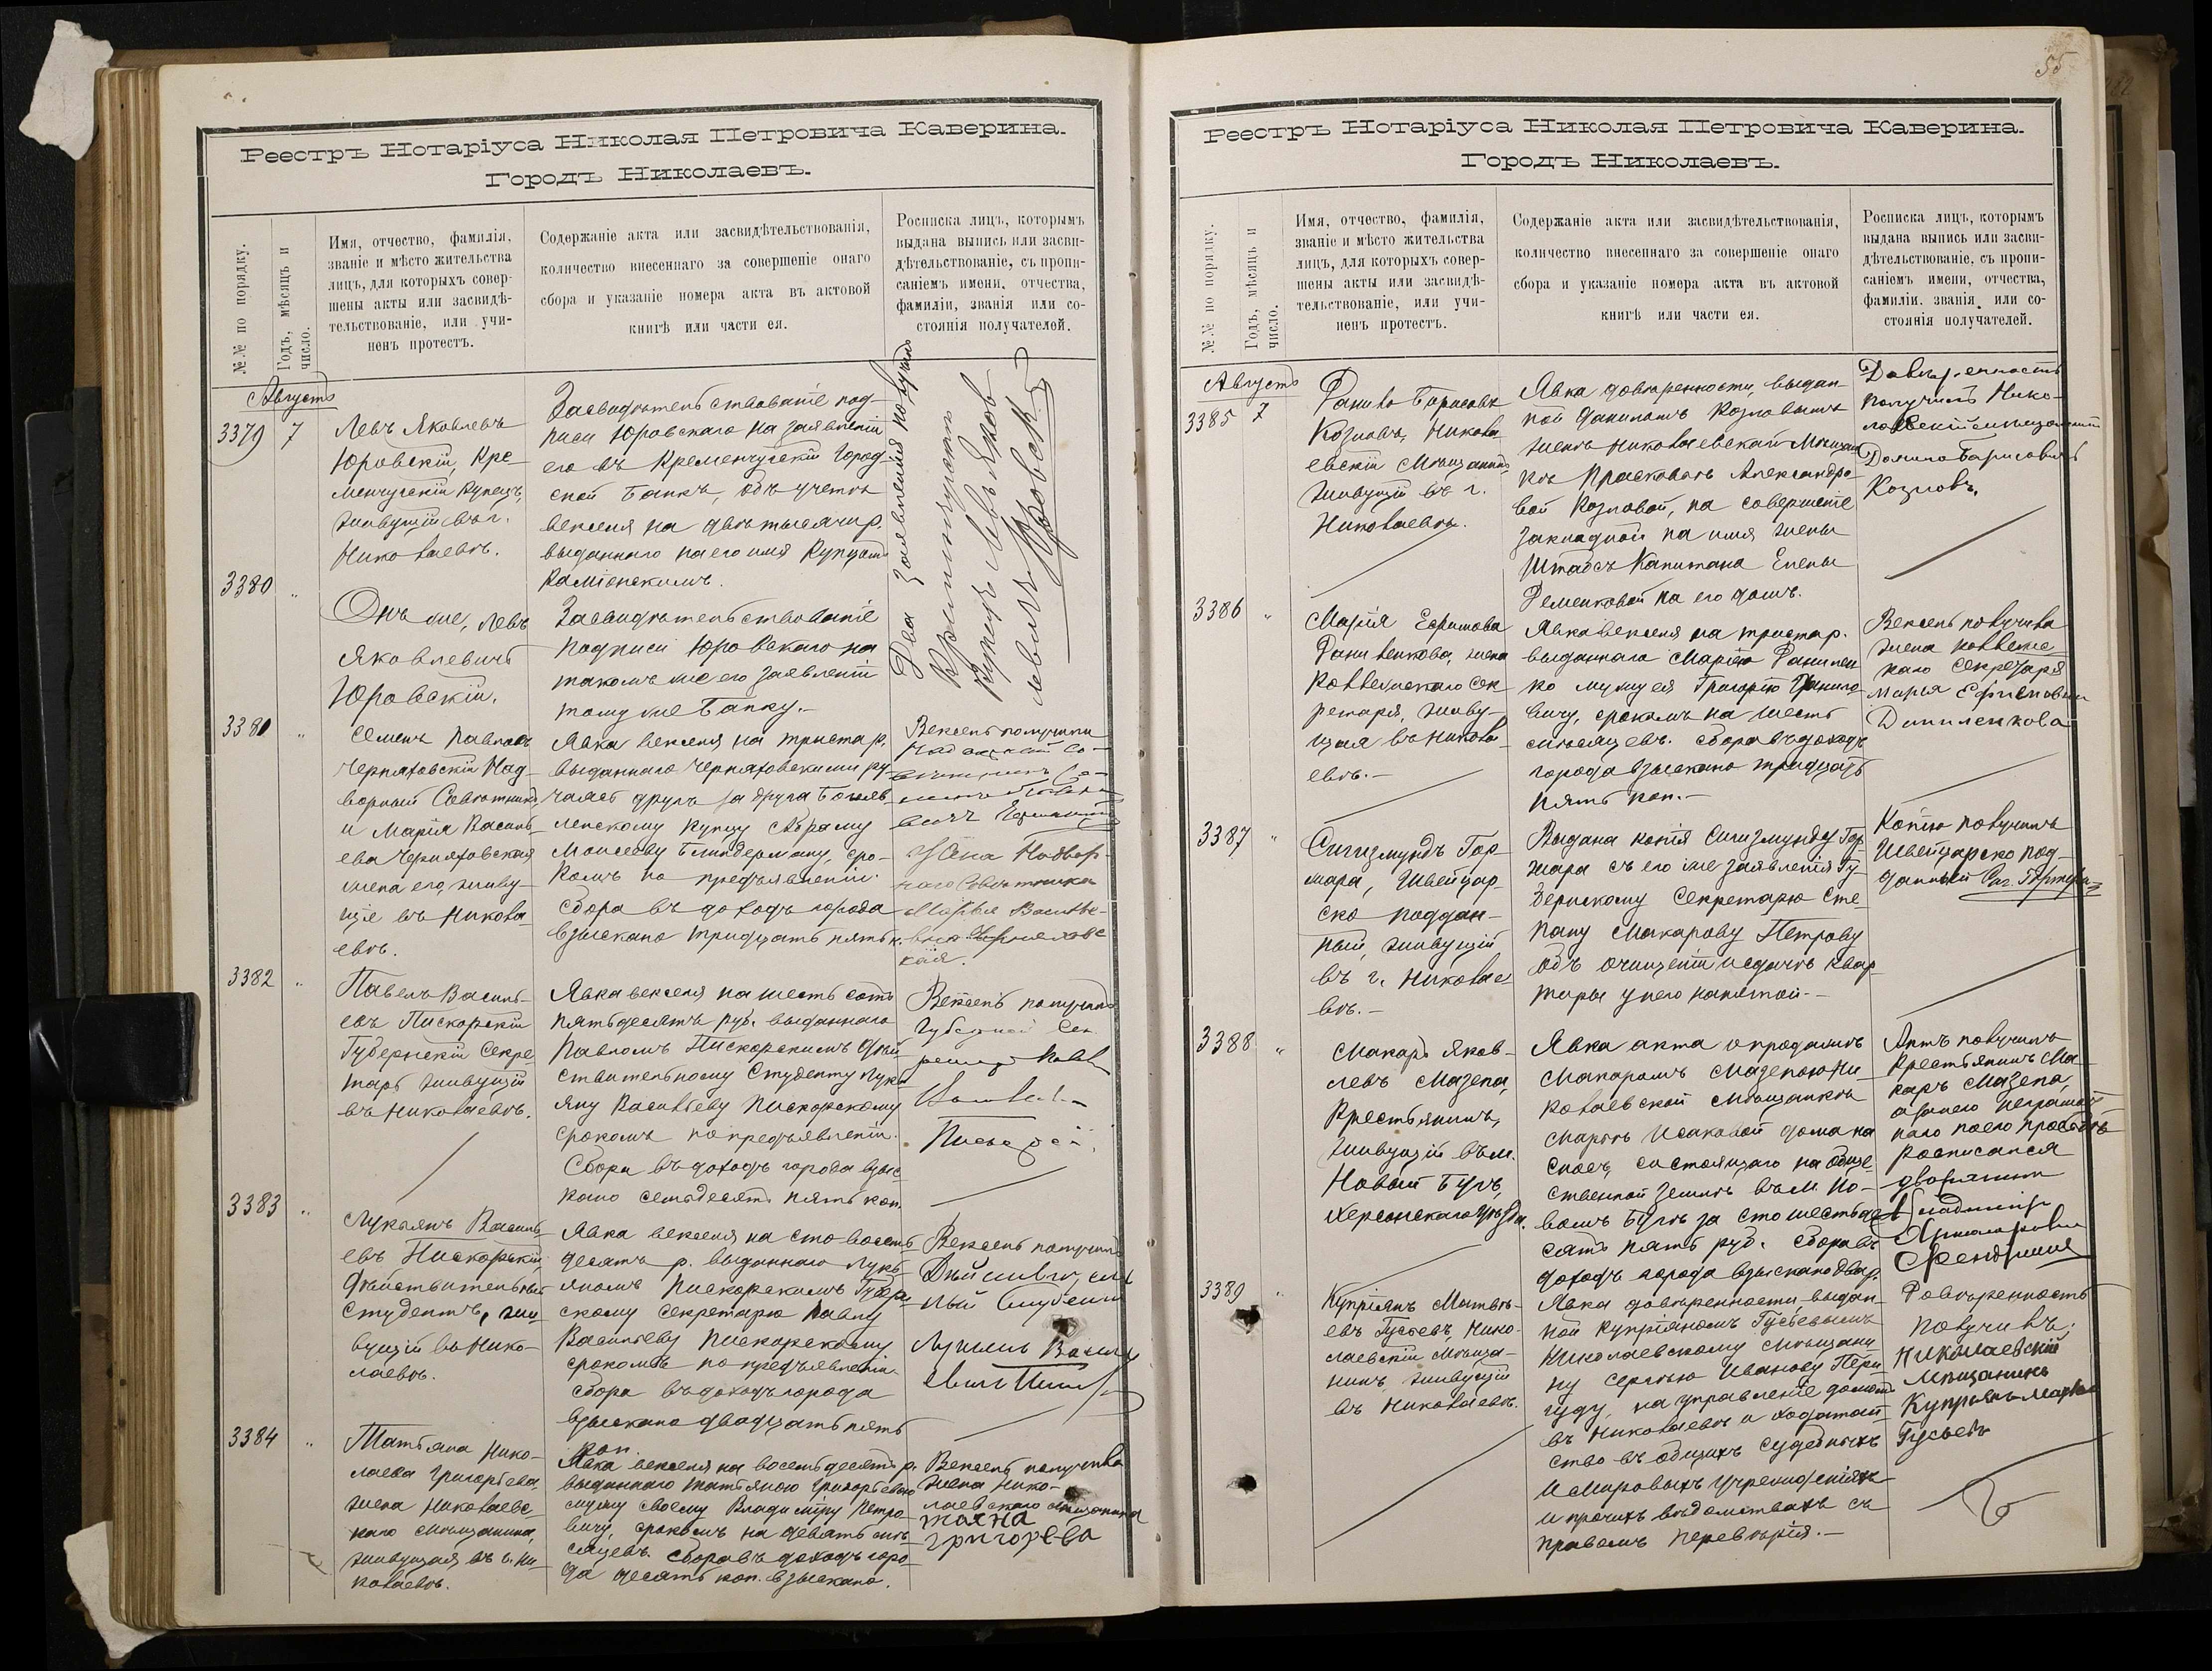 Реестръ Нотаріуса Николая Петровича Каверина.
Городъ Николаевъ.
№№ по порядку.
Годъ, мѣсяцъ и
число.
Имя, отчество, фамилія,
званіе и мѣсто жительства
лицъ, для которыхъ совер-
шены акты или засвидѣ-
тельствованіе, или учи-
ненъ протестъ.
Содержаніе акта или засвидѣтельствованія,
количество внесеннаго за совершеніе онаго
сбора и указаніе номера акта въ актовой
книгѣ или части ея.
Росписка лицъ, которымъ
выдана выпись или засви-
дѣтельствованіе, съ пропи-
саніемъ имени, отчества,
фамиліи, званія или со-
стоянія получателей.
Августъ
3379 7
Левъ Яковлевъ
Юровскій, Кре-
менчугскій Купецъ,
живущій въ г.
Николаевѣ.
Засвидѣтельствованіе под-
писи Юровскаго на заявленіи
его въ Кременчугскій Город-
ской Банкъ, объ учетѣ
векселя на двѣ тысячи р.
выданнаго на его имя Купцомъ
Каміонскимъ.
Два заявленія получилъ
Кременчугскій
Купецъ Левъ Яков
левичъ Юровскій
3380 "
Онъ же, Левъ
Яковлевичъ
Юровскій.
Засвидѣтельствованіе
подписи Юровскаго на
такомъ же его заявленіи
тому же Банку.-
3381 "
Семенъ Павловъ
Черняховскій Над-
ворный Совѣтникъ,
и Марія Василь-
ева Черняховская
жена его, живу-
щіе въ Никола-
евѣ.
Явка векселя на триста р.
выданнаго Черняховскими ру-
чаясь другъ за друга
Купцу Абраму
Моисееву Блиндерману, сро-
комъ по предъявленіи.
Сбора въ доходъ города
взыскано тридцать пять к.
Вексель получили
Надворный Со-
Жена Надвор-
наго Совѣтника
Марья Василье-
вна Черняховс
кая.
3382 "
Павелъ Василь-
евъ Пискорскій
Губернскій Секре
тарь живущій
въ Николаевѣ.
Явка векселя на шесть сотъ
пятьдесятъ руб. выданнаго
Павломъ Пискорскимъ Дѣй-
ствительному Студенту Лукь
яну Васильеву Пискорскому
срокомъ по предъявленіи.
Сбора въ доходъ города взыс-
кано семьдесятъ пять коп.
Вексель получилъ
Губернскій Сек
3383 "
Лукьянъ Василь-
евъ Пискорскій,
Дѣйствительный
Студентъ, жи-
вущій въ Нико-
лаевѣ.
Явка векселя на сто восемь-
десятъ р. выданнаго Лукь-
яномъ Пискорскимъ Губерн-
скому Секретарю Павлу
Васильеву Пискорскому
срокомъ по предъявленіи.
сбора въ доходъ города
взыскано двадцать пять
коп.
Вексель получилъ
Дѣйствитель
ный Студентъ
3384 "
Татьяна Нико-
лаева Григорьева,
жена Николаевс
каго мѣщанина,
живущая въ г. Ни-
колаевѣ.
Явка векселя на восемьдесятъ р.
выданнаго Татьяною Григорьевою
мужу своему Владиміру Петро-
вичу, срокомъ на девять мѣ-
сяцевъ. Сбора въ доходъ горо-
да десять коп. взыскано.
Вексель получила
жена Нико-
лаевскаго мѣщанина
григорева
55
Реестръ Нотаріуса Николая Петровича Каверина.
Городъ Николаевъ.
№№ по порядку.
Годъ, мѣсяцъ и
число.
Имя, отчество, фамилія,
званіе и мѣсто жительства
лицъ, для которыхъ совер-
шены акты или засвидѣ-
тельствованіе, или учи-
ненъ протестъ.
Содержаніе акта или засвидѣтельствованія,
количество внесеннаго за совершеніе онаго
сбора и указаніе номера акта въ актовой
книгѣ или части ея.
Росписка лицъ, которымъ
выдана выпись или засви-
дѣтельствованіе, съ пропи-
саніемъ имени, отчества,
фамиліи, званія или со-
стоянія получателей.
Августъ
3385 7
Данило Борисовъ
Козловъ, Никола-
евскій Мѣщанинъ,
живущій въ г.
Николаевѣ.
Явка довѣренности, выдан-
ной Даниломъ Козловымъ
женѣ Николаевской Мѣщан
кѣ Прасковьѣ Александро-
вой Козловой, на совершеніе
закладной на имя жены
Штабсъ Капитана Елены
Ременковой на его домъ.
Довѣренность
получилъ Нико-
лаевскій мѣщанинъ
Данило Барисовичъ
Козловъ.
3386 "
Марія Ефимова
Даниленкова, жена
Коллежскаго Сек
ретаря, живу-
щая въ Никола-
евѣ.-
Явка векселя на триста р.
выданнаго Маріею Данилен
ко мужу ея Григорію Данило
вичу, срокомъ на шесть
мѣсяцевъ. Сбора въ доходъ
города взыскано тридцать
пять коп.-
Вексель получила
жена коллеже
каго секретаря
Марья Ефимовна
Даниленкова
3387 "
Сигизмундъ Гор-
жара, Швейцар-
ско поддан-
ный, живущій
въ г. Николае-
вѣ.-
Выдана копія Сигизмунду Гор-
жара съ его же заявленія Гу-
бернскому Секретарю Сте-
пану Макарову Петрову
объ очищеніи и сдачѣ квар-
тиры у него нанятой.-
Копію получилъ
Швейцарско под-
данный
3388 "
Макаръ Яков-
левъ Мазепа,
Крестьянинъ,
живущій въ м.
Новый Бугъ,
Херсонскаго Уѣзда.
Явка акта о продажѣ
Макаромъ Мазепою Ни-
колаевской мѣщанкѣ
Марѣѣ Исаковой дома на
сносъ, состоящаго на обще-
ственной землѣ въ м. Но-
вомъ Бугѣ за сто шестьде-
сятъ пять руб. Сбора въ
доходъ города взыскано два р.
Актъ получилъ
Крестьянинъ Ма-
каръ Мазепа,
а за него неграмот-
наго по его просьбѣ
росписался
дворянинъ
3389 "
Купріянъ Матвѣ-
евъ Гусьевъ, Нико-
лаевскій мѣща-
нинъ живущій
въ Николаевѣ.
Явка довѣренности, выдан-
ной Купріяномъ Гусьевымъ
Николаевскому Мѣщани
ну Сергѣю Иванову
на управленіе домомъ
въ Николаевѣ и ходатай-
ство въ общихъ судебныхъ
и Мировыхъ учрежденіяхъ
и прочихъ вѣдомствахъ съ
правомъ перевѣрія.-
Довѣренность
получилъ.
Николаевский
Мѣщанинъ
Гусьевъ